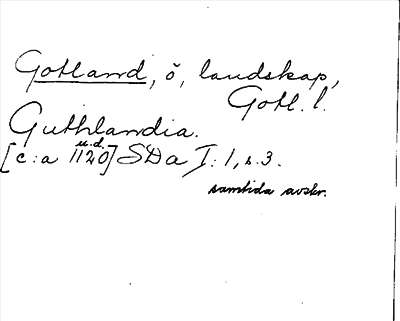 Gotland, ö, landskap,
Gotl. l.
Guthlandia.
u.d.
[c:a 1120] SDa I:1, s. 3.
samtida avskr.